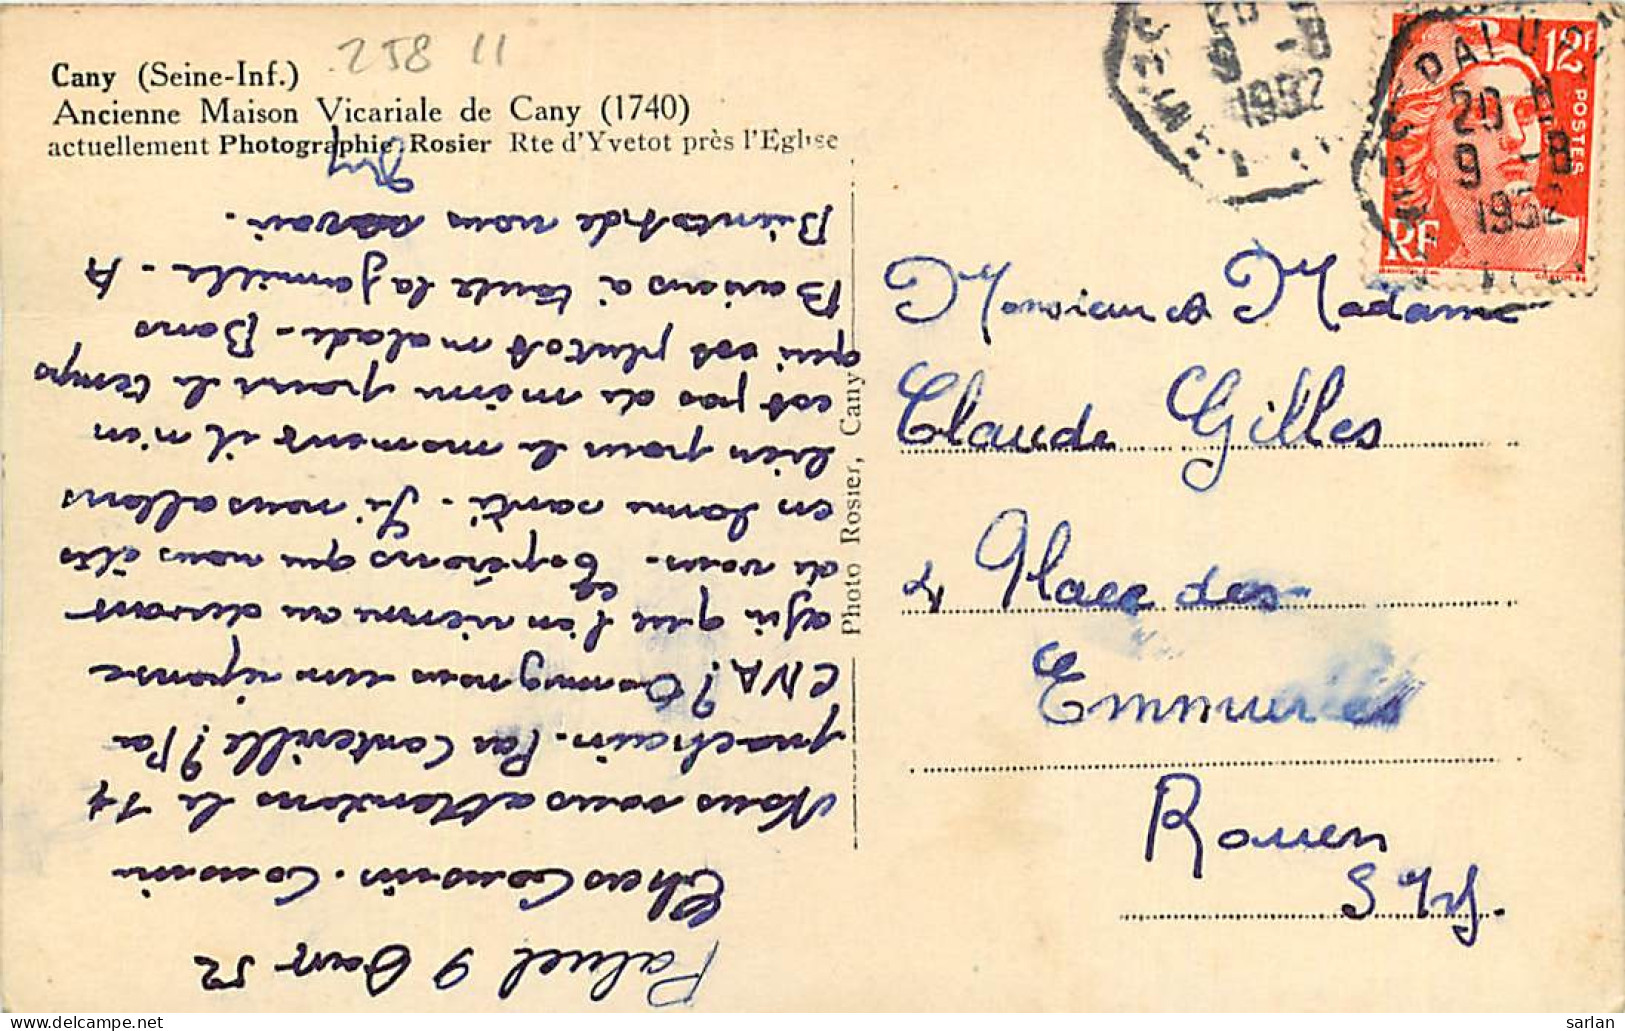 258 11
Cany (Seine-Inf.)
Ancienne Maison Vicariale de Cany (1740)
actuellement Photographie Rosier Rte d'Yvetot près l'Eglise
Photo Rosier, Cany
12F
POSTES
RF
PALUEL
20 H
9 -8
1952
9 -8
1952
Monsieur et Madame
Claude Gilles
4 Place des
Emmurées
Rouen
S Inf.
Paluel 9 Août 52
Chers Cousin. Cousine
Nous vous attendons le 14
prochain. Par Conteville? Par
CNA? Donnez nous une réponse
afin que l'on vienne au devant
de vous. Espérons que vous êtes
en bonne santé. Si nous allons
bien pour le moment il n'en
est pas de même pour le temps
qui est plutôt malade. Bons
Baisers à toute la famille. A
Bientôt de vous revoir.